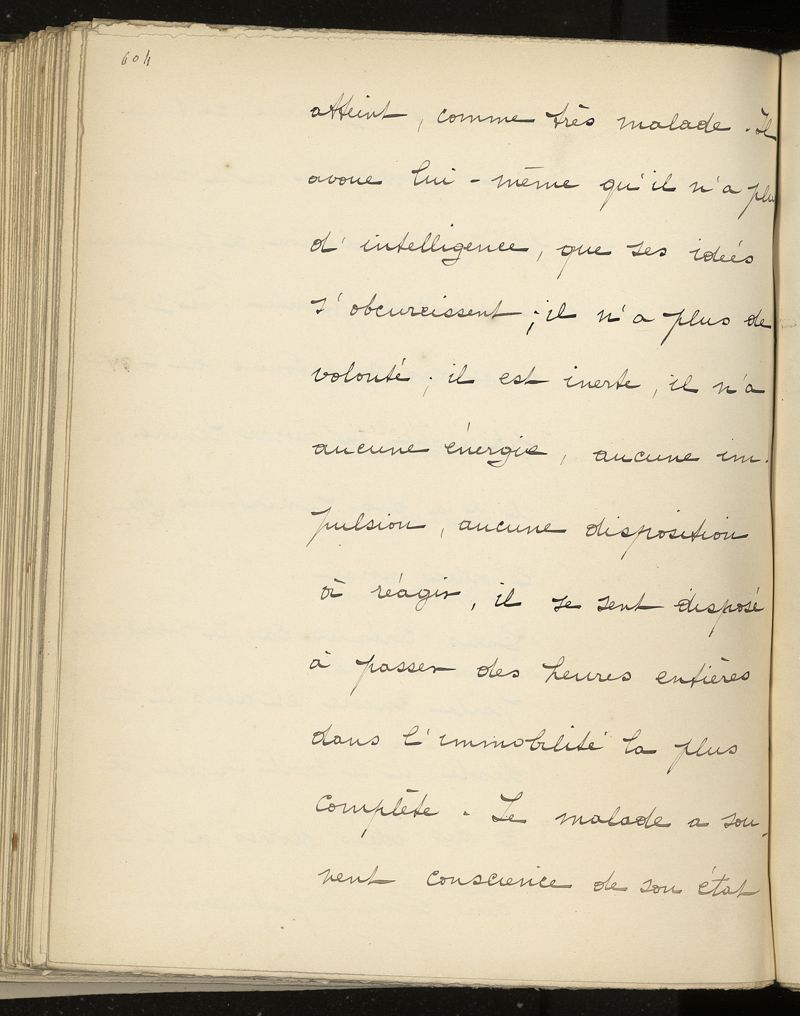 604
atteint, comme très malade. Il
avoue lui-même qu'il n'a plus
d'intelligence, que ses idées
s'obcurcissent ; il n'a plus de
volonté ; il est inerte, il n'a
aucune énergie, aucune im-
pulsion, aucune disposition
à réagir, il se sent disposé
à passer des heures entières
dans l'immobilité la plus
complète. Le malade a sou-
vent conscience de son état